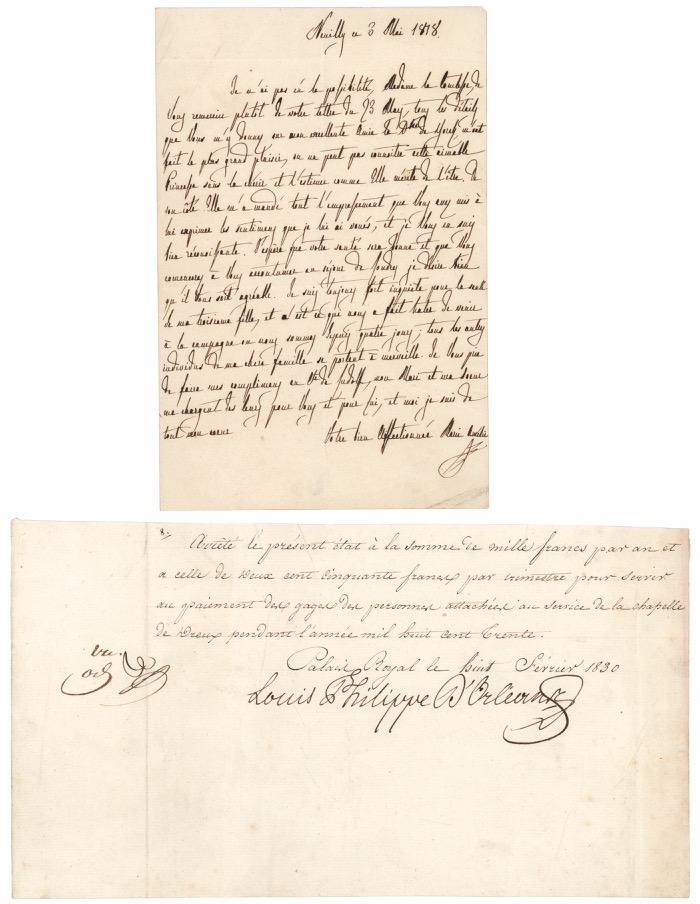 Neuilly ce 3 Mai 1818.
Je n'ai pas eû la possibilité, Madame la Comtesse, de
Vous remercier plutôt de votre lettre du 23 Mars, tous les détails
que Vous m'y donnez sur mon excellente Amie la Dsse de York m'ont
fait le plus grand plaisir, on ne peut pas connoître cette aimable
Princesse sans la chérir et l'estimer comme Elle mérite de l'être. De
son côté Elle m'a mandé tout l'empressement que Vous avez mis à
lui exprimer les sentimens que je lui ai voués, et je Vous en suis
bien réconnoissante. J'espère que votre santé sera bonne et que Vous
commencez à Vous accoutumer au séjour de Londres je désire bien
qu'il Vous soit agréable. Je suis toujours fort inquiète pour la santé
de ma troisieme fille, et c'est ce qui nous a fait hater de venir
à la campagne où nous sommes depuis quatre jours; tous les autres
individus de ma chère famille se portent à merveille. Je Vous prie
de faire mes complimens au Cte de Ludolf, mon Mari et ma Soeur
me chargent des leurs pour Vous et pour lui, et moi je suis de
tout mon coeur
Votre bien affectionnée Marie Amélie
Arrêté le présent état à la somme de mille francs par an et
a celle de Deux cent cinquante francs par trimestre pour servir
au paiement des gages des personnes attachées au service de la chapelle
de Dreux pendant l'année mil huit cent trente.
Palais Royal le huit Février 1830
vu.
Louis Philippe D'Orleans